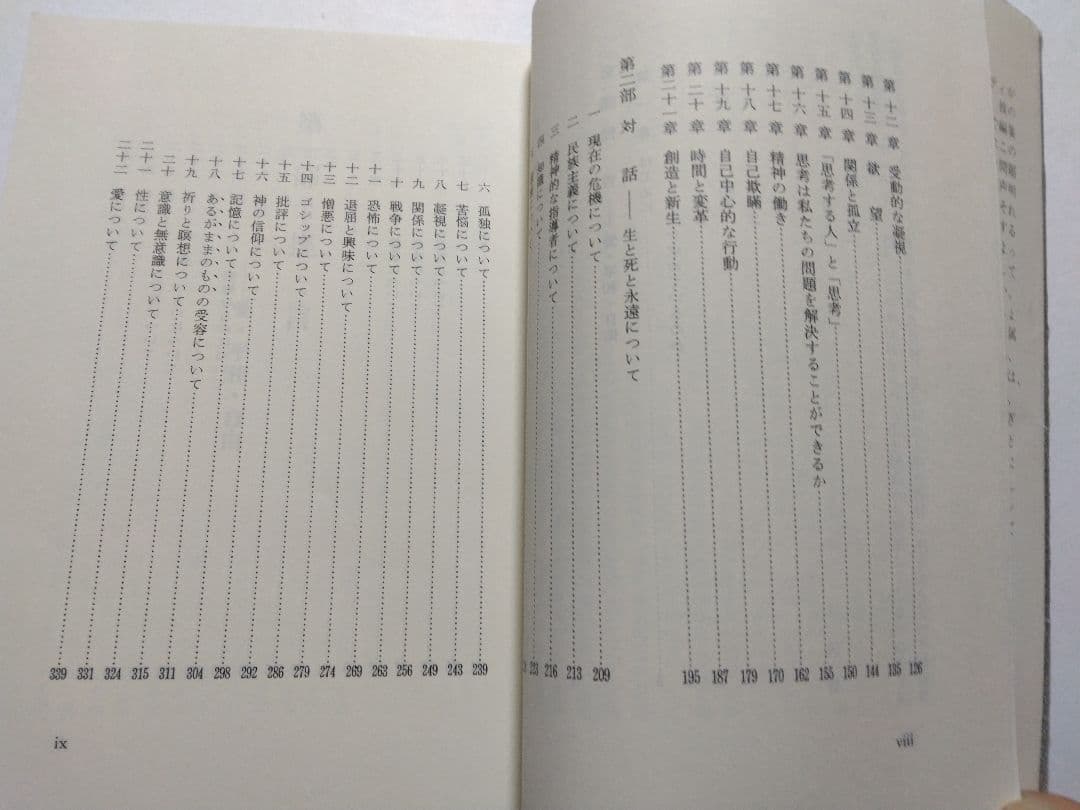 第十二章 受動的な凝視 126
第十三章 欲望 135
第十四章 関係と孤立 144
第十五章 「思考する人」と「思考」 150
第十六章 思考は私たちの問題を解決することができるか 155
第十七章 精神の働き 162
第十八章 自己欺瞞 170
第十九章 自己中心的な行動 179
第二十章 時間と変革 187
第二十一章 創造と新生 195
第二部 対話――生と死と永遠について
一 現在の危機について 209
二 民族主義について 213
三 精神的な指導者について 216
四 知識について
viii
六 孤独について 239
七 苦悩について 243
八 凝視について 249
九 関係について 256
十 戦争について 263
十一 恐怖について 269
十二 退屈と興味について 274
十三 憎悪について 279
十四 ゴシップについて 286
十五 批評について 292
十六 神の信仰について 298
十七 記憶について 304
十八 あるがままのものの受容について 311
十九 祈りと瞑想について 315
二十 意識と無意識について 324
二十一 性について 331
二十二 愛について 339
ix